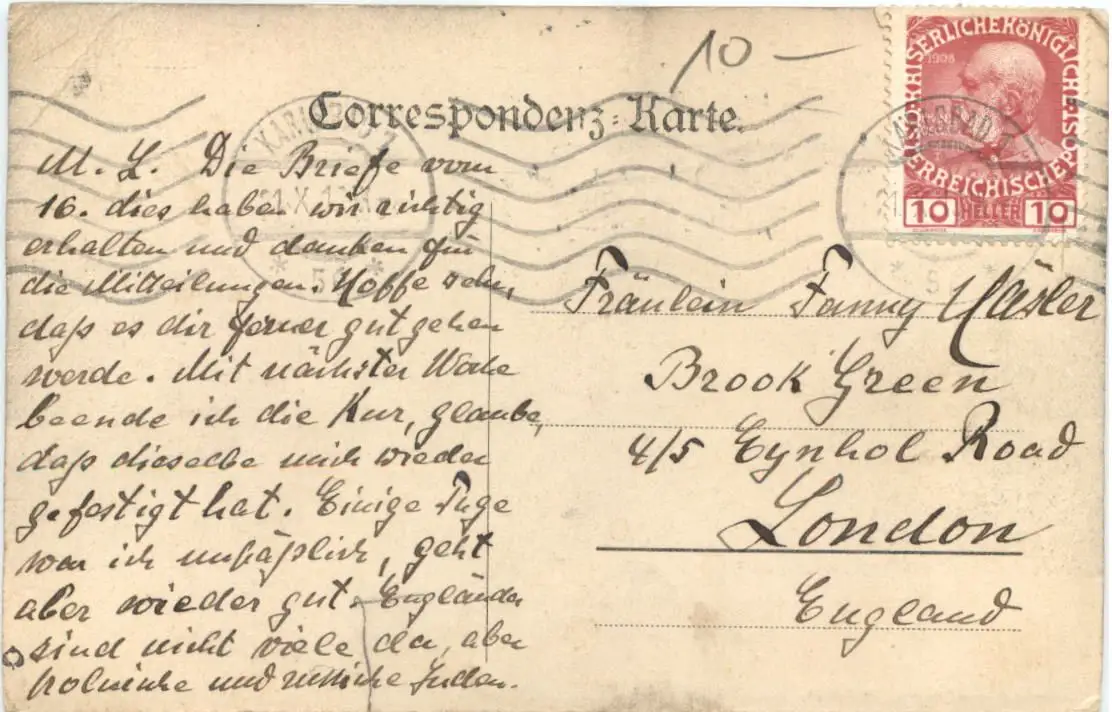 10 –
Correspondenz-Karte.
KAISERLICHEKÖNIGLICHE
ÖSTERREICHISCHEPOST
1908
10 HELLER 10
M. L. Die Briefe vom
16. dies haben wir richtig
erhalten und danken für
die Mitteilungen. Hoffe sehr,
daß es dir ferner gut gehen
werde. Mit nächster Woche
beende ich die Kur, glaube,
daß dieselbe mich wieder
gefestigt hat. Einige Tage
war ich unpäßlich, geht
aber wieder gut. Engländer
sind nicht viele da, aber
polnische und russische Juden.
Fräulein Fanny Häsler
Brook Green
4/5 Eynhol Road
London
England